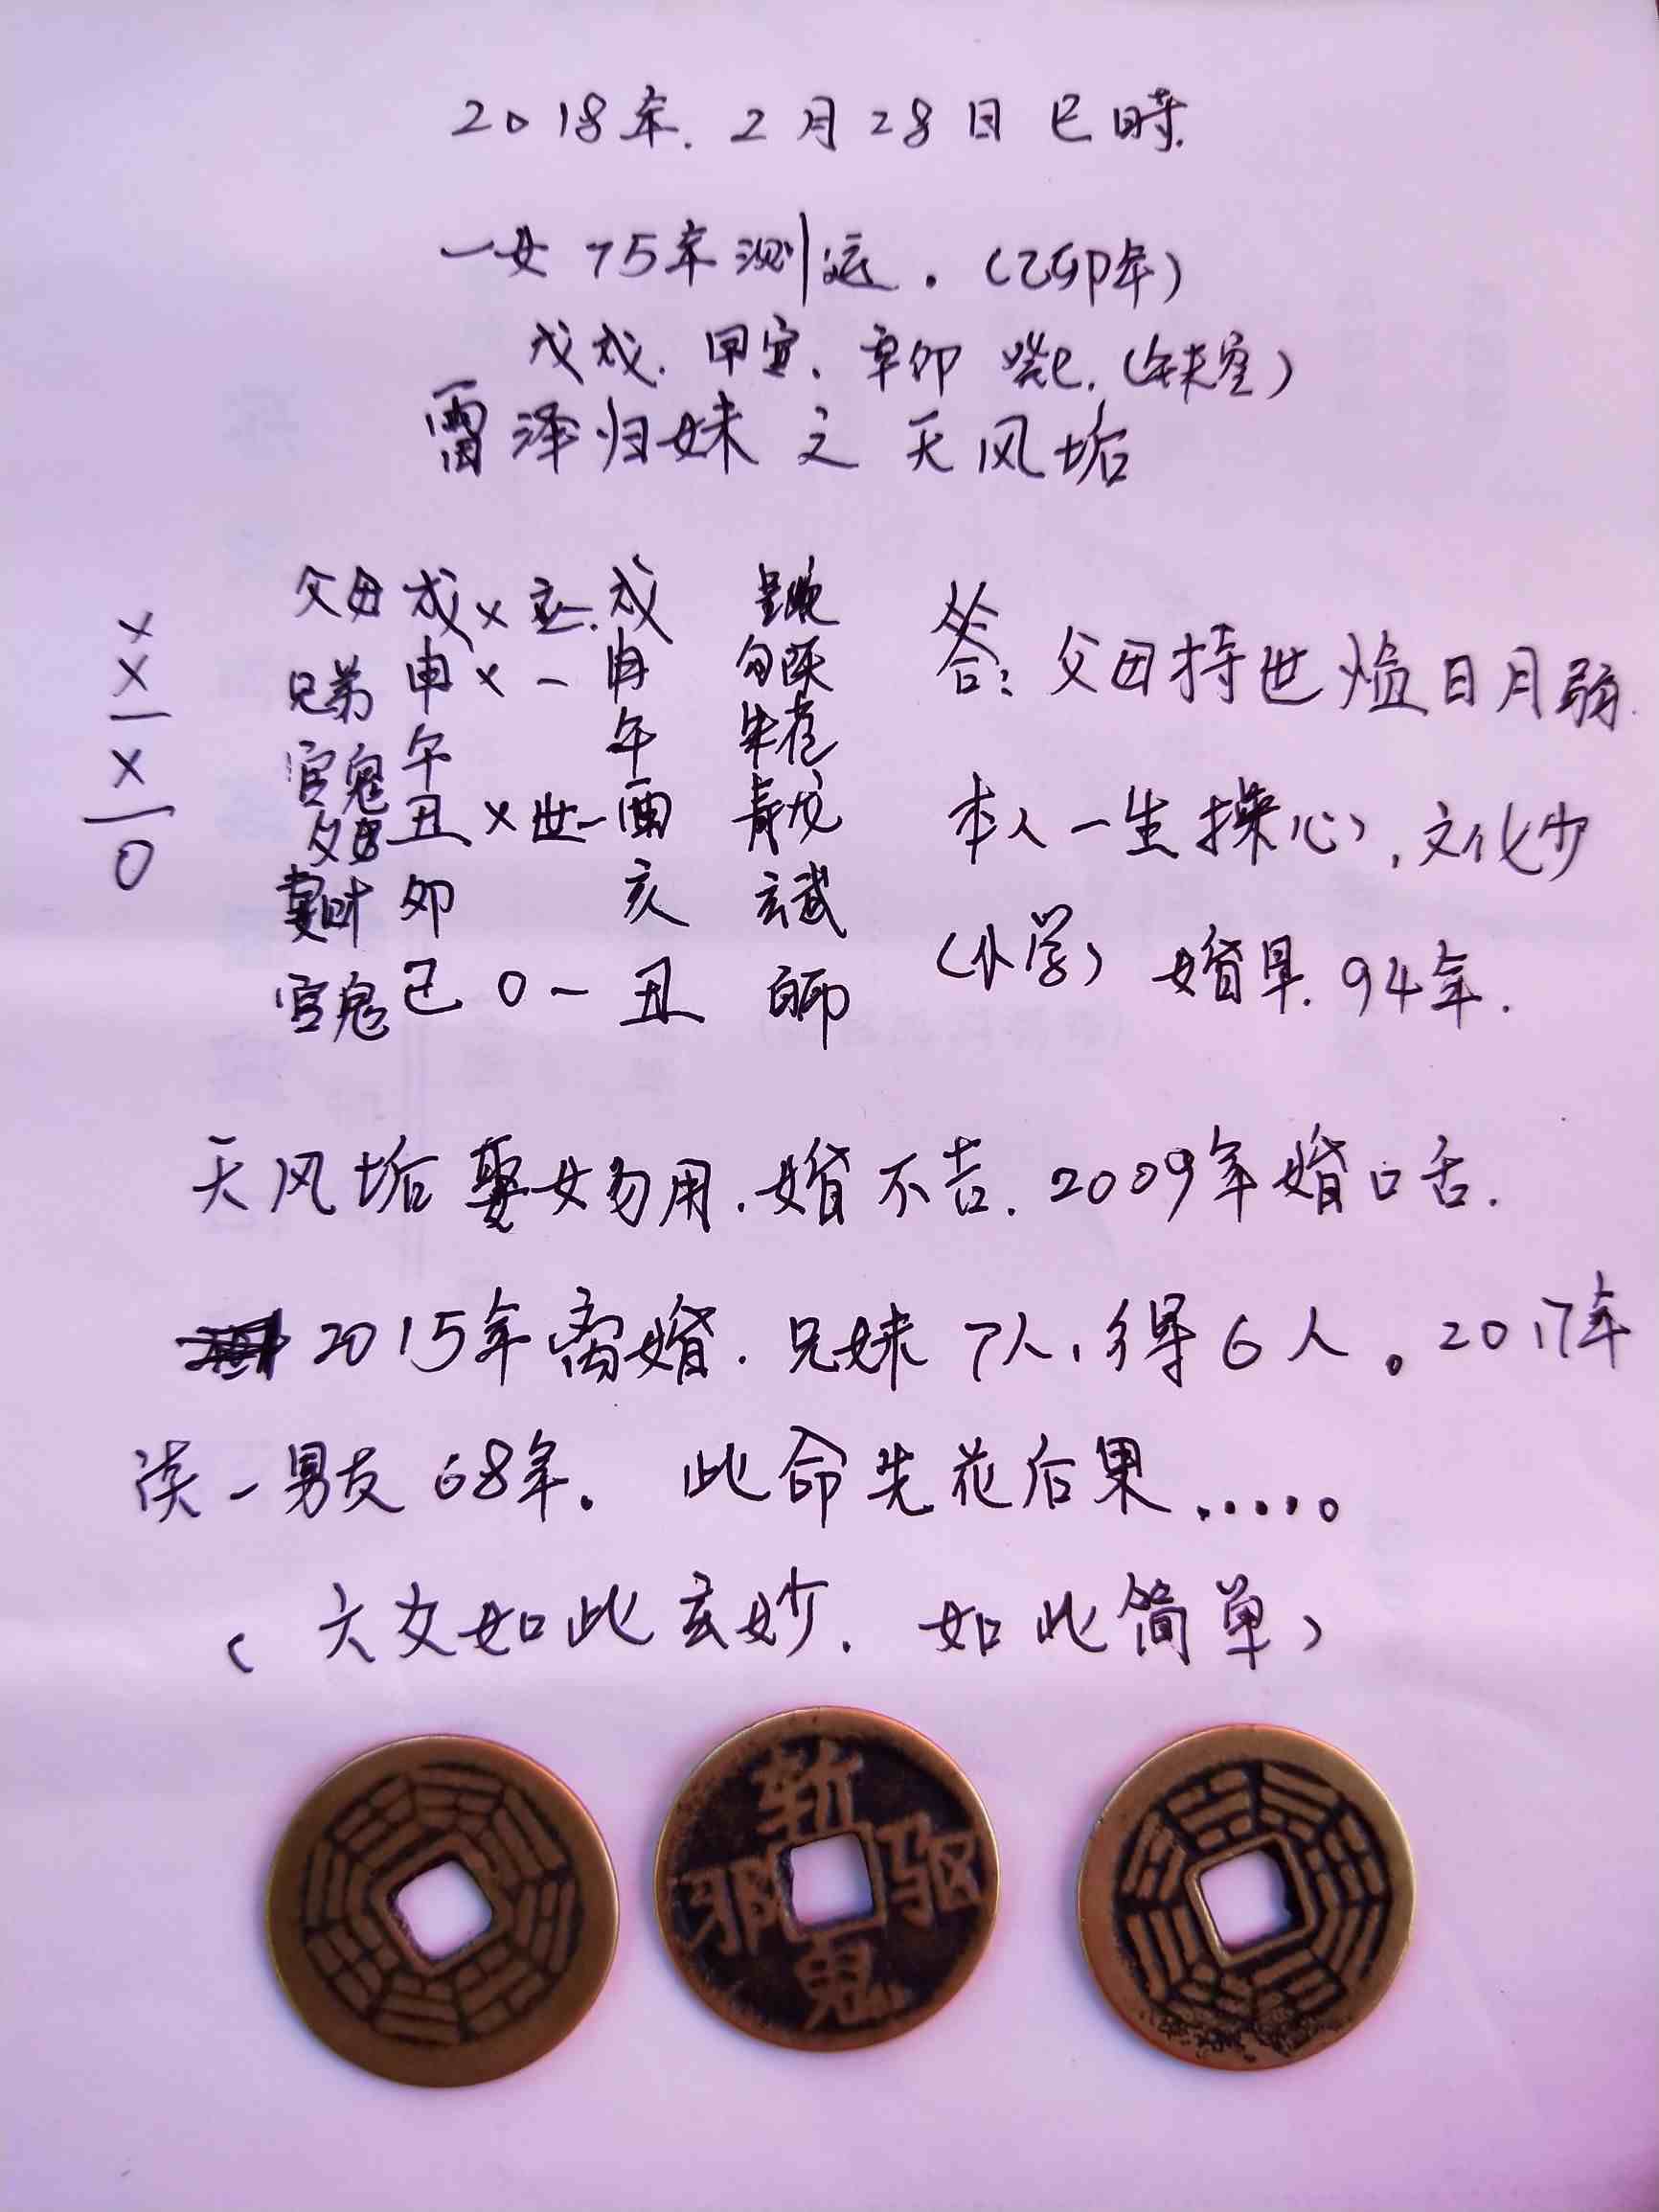 2018年.2月28日巳時.
一女75年测运.(乙卯年)
戊戌.甲寅.辛卯 癸巳.(午未空)
雷泽归妹之天风垢
父母戌×应.戌 螣蛇
兄弟申×-申 勾陈
官鬼午 午 朱雀
父母丑×世-酉 青龙
妻财卯 亥 玄武
官鬼巳0-丑 白虎
×
×
—
×
—
0
答:父母持世临日月弱.
本人一生操心,文化少
(小学)婚早.94年.
天风垢娶女勿用.婚不吉.2009年婚口舌.
2015年离婚.兄妹7人,得6人。2017年
谈一男友68年。此命先花后果.....。
(六爻如此玄妙.如此简单)
斩
邪 驱
鬼